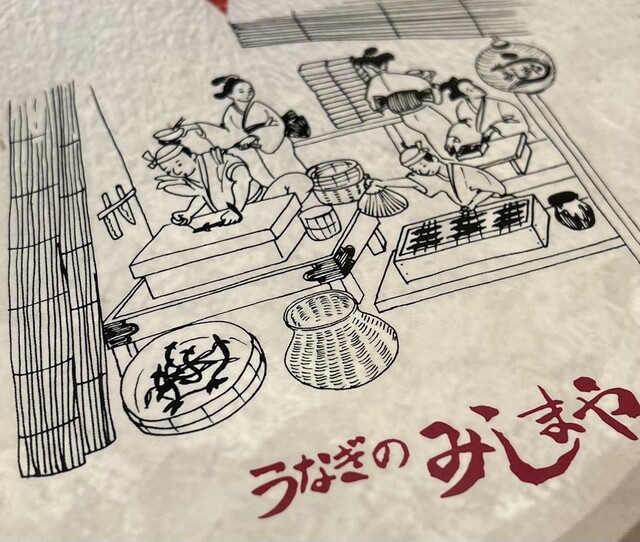 うなぎの みしまや